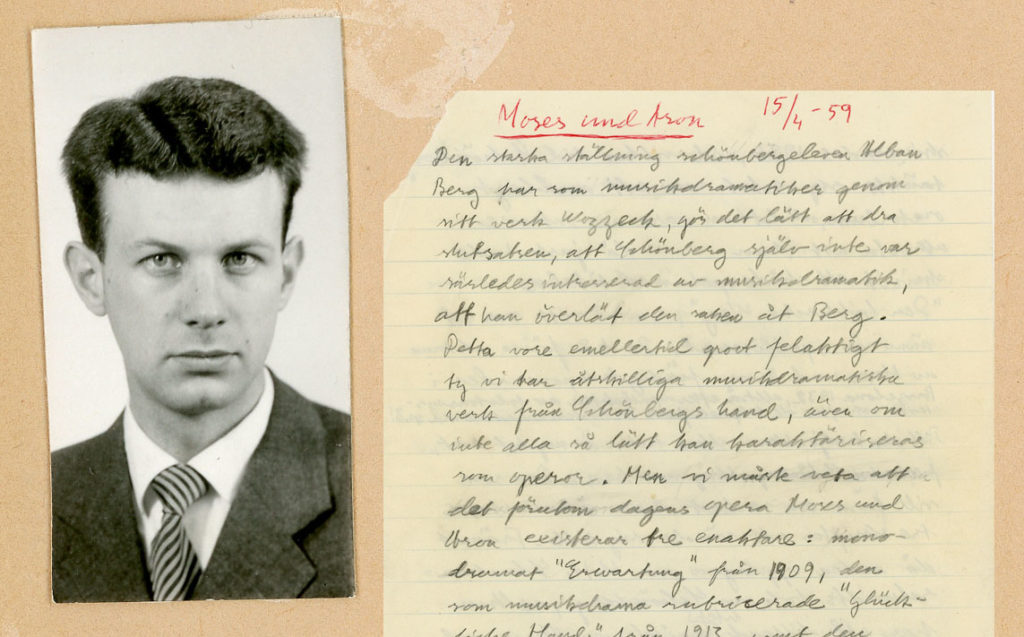 Moses und Aron 15/4 -59
Den starka ställning schönbergeleven Alban
Berg har som musikdramatiker genom
sitt verk Wozzeck, gör det lätt att dra
slutsatsen, att Schönberg själv inte var
särledes intresserad av musikdramatik,
att han överlät den saken åt Berg.
Detta vore emellertid grovt felaktigt
ty vi har åtskilliga musikdramatiska
verk från Schönbergs hand, även om
inte alla så lätt kan karaktäriseras
som operor. Men vi måste veta att
det förutom dagens opera Moses und
Aron existerar tre enaktare: mono-
dramat "Erwartung" från 1909, den
som musikdrama rubricerade "Glück-
liche Hand" från 1913 samt den